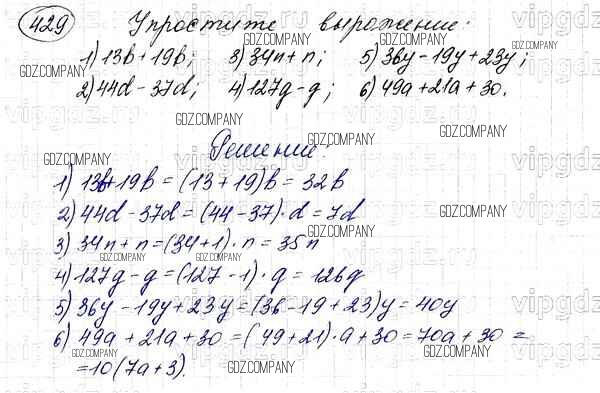 429 Упростите выражение:
1) 13b + 19b; 3) 34n + n; 5) 36y - 19y + 23y;
2) 44d - 37d; 4) 127g - g; 6) 49a + 21a + 30.
Решение:
1) 13b + 19b = (13 + 19)b = 32b
2) 44d - 37d = (44 - 37) · d = 7d
3) 34n + n = (34 + 1) · n = 35n
4) 127g - g = (127 - 1) · g = 126g
5) 36y - 19y + 23y = (36 - 19 + 23)y = 40y
6) 49a + 21a + 30 = (49 + 21) · a + 30 = 70a + 30 =
= 10(7a + 3).
GDZ.COMPANY
vipgdz.ru